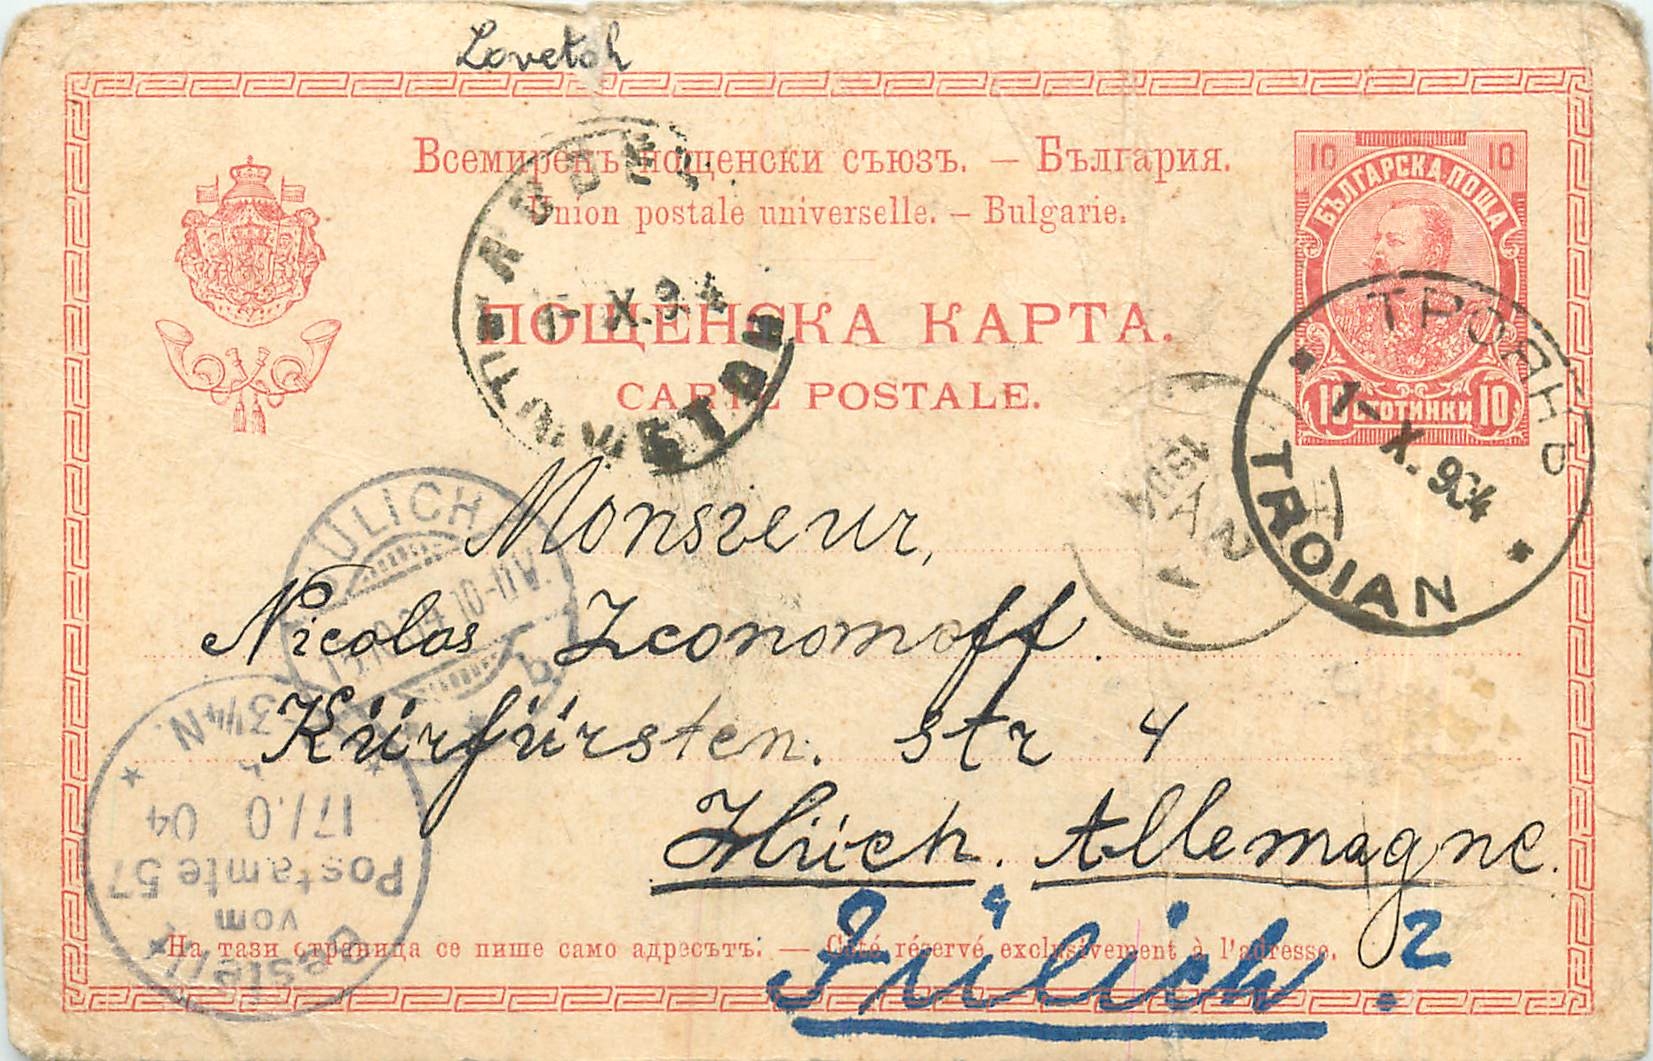 Lovetch
Всемиренъ пощенски съюзъ. — България.
Union postale universelle. — Bulgarie.
ПОЩЕНСКА КАРТА.
CARTE POSTALE.
10 10
БЪЛГАРСКА ПОЩА
10 СТОТИНКИ 10
ТРОЯНЪ
1-X.904
TROIAN
1-X.904
JÜLICH
Monsieur,
Nicolas Iconomoff.
Kürfürsten. str 4
Hüich. Allemagne.
Jülich. 2
Bestellt
vom
Postamte 57
17/10 04
3¼-4¼N.
На тази страница се пише само адресътъ. — Coté réservé exclusivement à l'adresse.